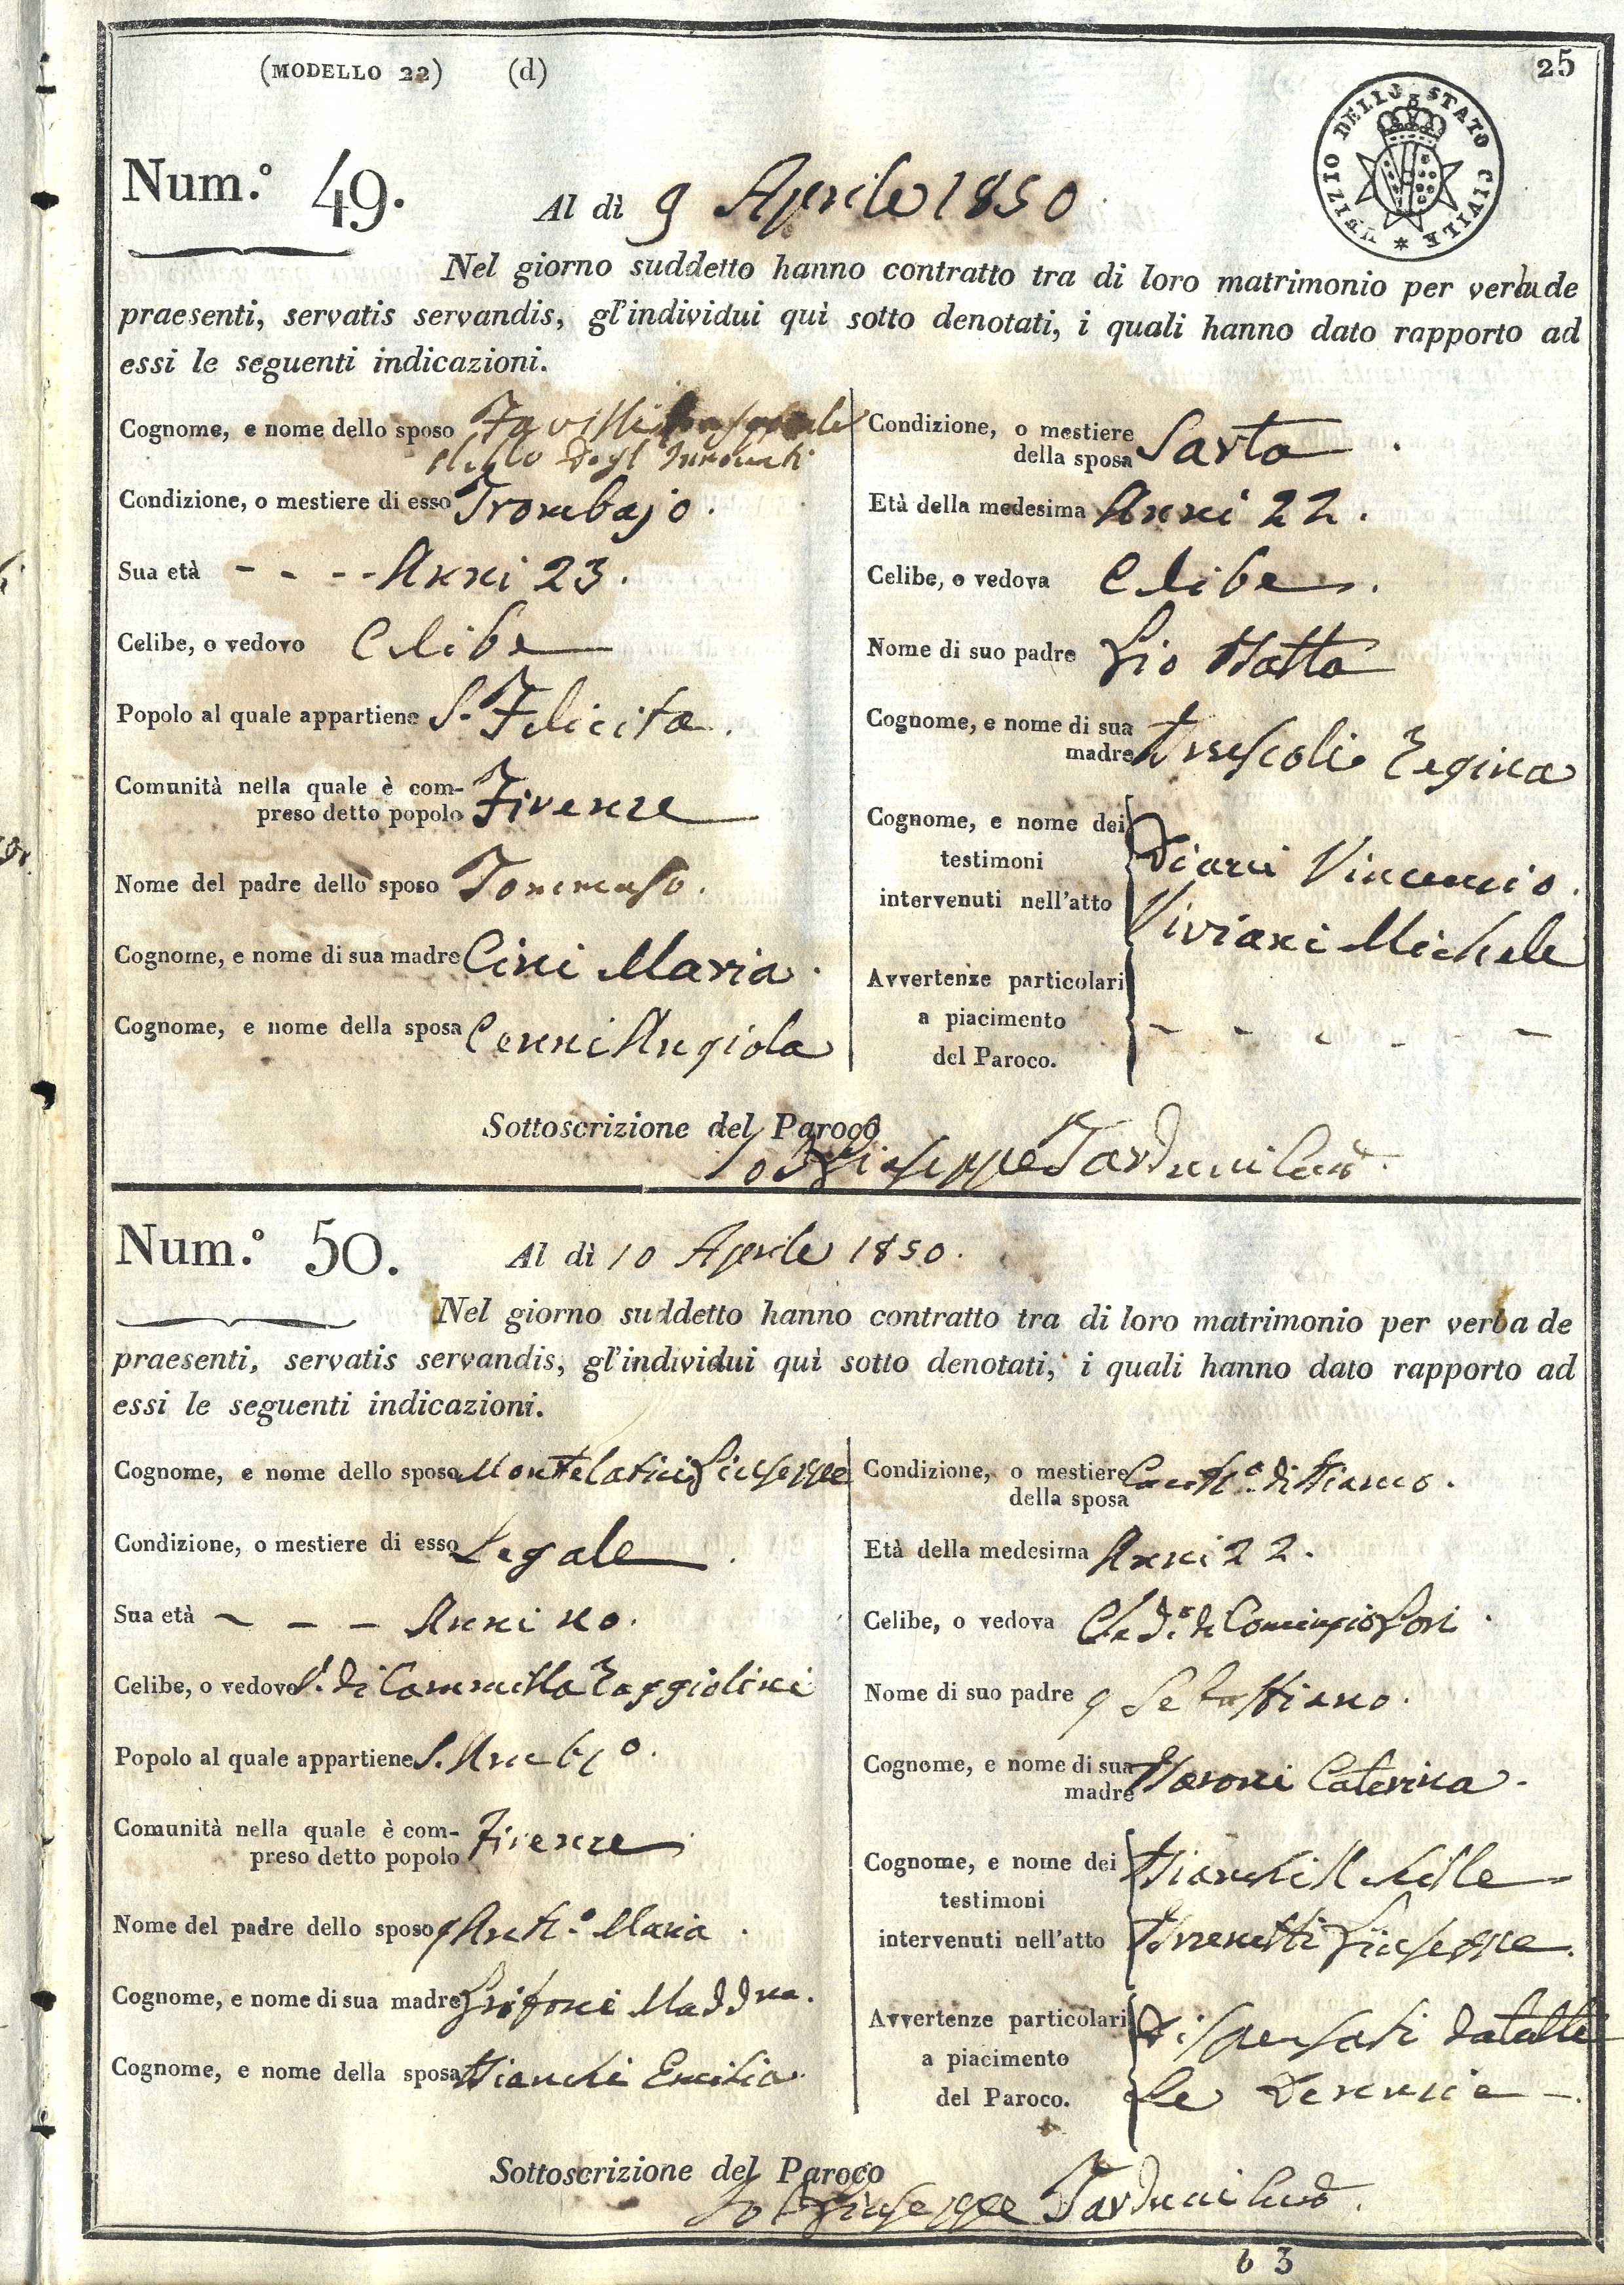 (MODELLO 22) (d)
25
UFIZIO DELLO STATO CIVILE
Num.º 49.
Al dì 9 Aprile 1850.
Nel giorno suddetto hanno contratto tra di loro matrimonio per verba de
praesenti, servatis servandis, gl'individui quì sotto denotati, i quali hanno dato rapporto ad
essi le seguenti indicazioni.
Cognome, e nome dello sposo
Degl' Innocenti
Condizione, o mestiere di esso Trombajo.
Sua età - - - - Anni 23.
Celibe, o vedovo Celibe
Popolo al quale appartiene S. Felicita.
Comunità nella quale è com-
preso detto popolo Firenze
Nome del padre dello sposo Tommaso.
Cognome, e nome di sua madre Cini Maria.
Cognome, e nome della sposa Cenni Angiola
Condizione, o mestiere
della sposa Sarta.
Età della medesima Anni 22.
Celibe, o vedova Celibe.
Nome di suo padre Gio Batta
Cognome, e nome di sua
madre Brescoli Regina
Cognome, e nome dei
testimoni
intervenuti nell'atto
Vincenzio.
Viviani Michele
Avvertenze particolari
a piacimento
del Paroco.
- - - - - -
Sottoscrizione del Paroco
Io Giuseppe Tarduni
Num.º 50.
Al dì 10 Aprile 1850.
Nel giorno suddetto hanno contratto tra di loro matrimonio per verba de
praesenti, servatis servandis, gl'individui quì sotto denotati, i quali hanno dato rapporto ad
essi le seguenti indicazioni.
Cognome, e nome dello sposo Montelatici Giuseppe
Condizione, o mestiere di esso Legale.
Sua età - - - Anni 40.
Celibe, o vedovo V. di Cammilla Raggiolini
Popolo al quale appartiene S. Amb.º
Comunità nella quale è com-
preso detto popolo Firenze
Nome del padre dello sposo q Ant.º Maria.
Cognome, e nome di sua madre Grifoni Madd.na.
Cognome, e nome della sposa Bianchi Emilia.
Condizione, o mestiere
della sposa di Bianco.
Età della medesima Anni 22.
Celibe, o vedova
Nome di suo padre q Sebastiano.
Cognome, e nome di sua
madre Baroni Caterina.
Cognome, e nome dei
testimoni
intervenuti nell'atto
Bianchi Achille
Brenetti Giuseppe.
Avvertenze particolari
a piacimento
del Paroco.
Dispensati da tutte
le Denunzie -.
Sottoscrizione del Paroco
Io Giuseppe Tarduni
b 3